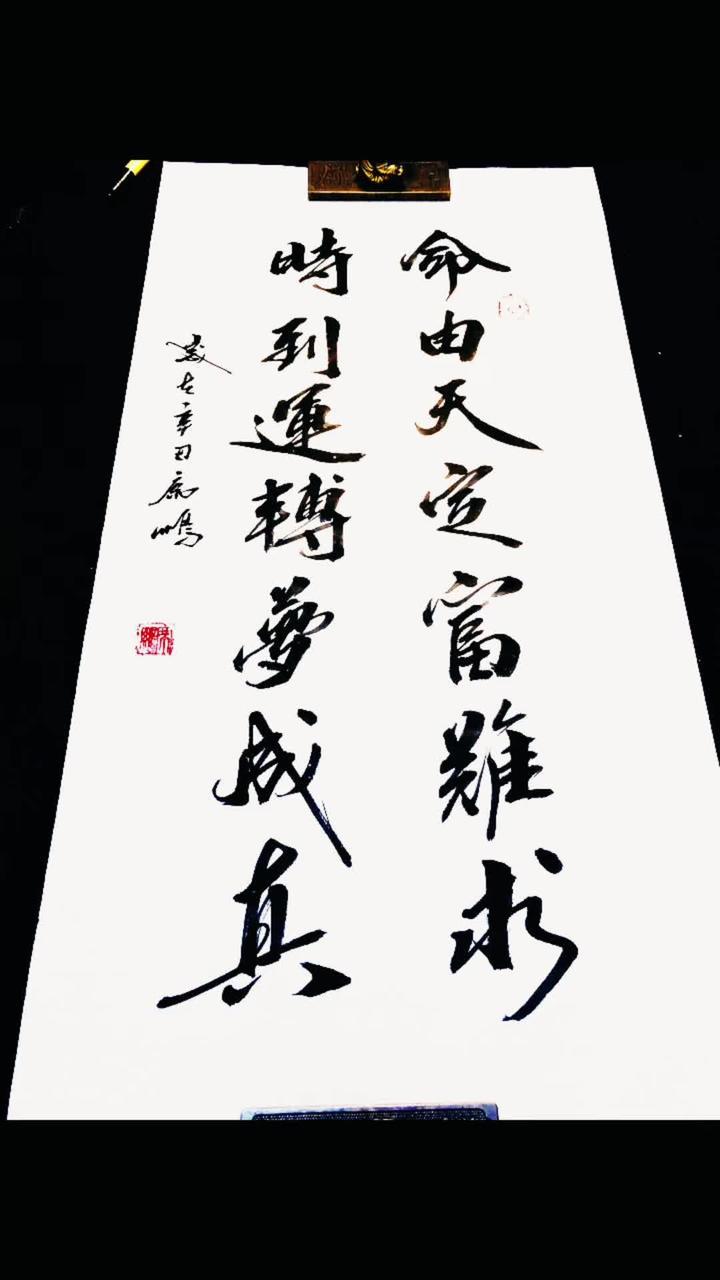 命由天定富難求
時到運轉夢成真
歲在辛丑鵬